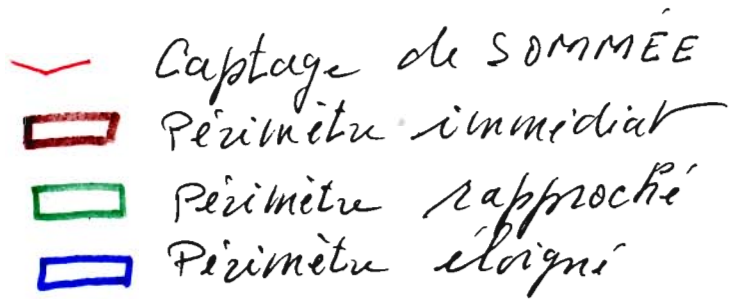 Captage de SOMMÉE
Périmètre immédiat
Périmètre rapproché
Périmètre éloigné